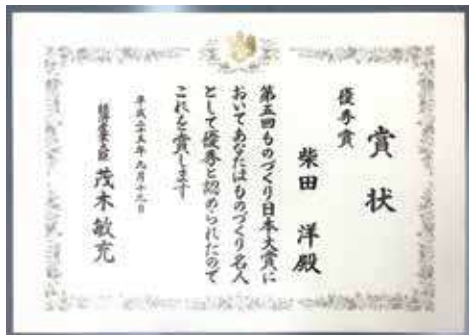 賞状
優秀賞
柴田 洋殿
第五回ものづくり日本大賞に
おいてあなたはものづくり名人
として優秀と認められたので
これを賞します
平成二十五年九月十九日
経済産業大臣 茂木敏充